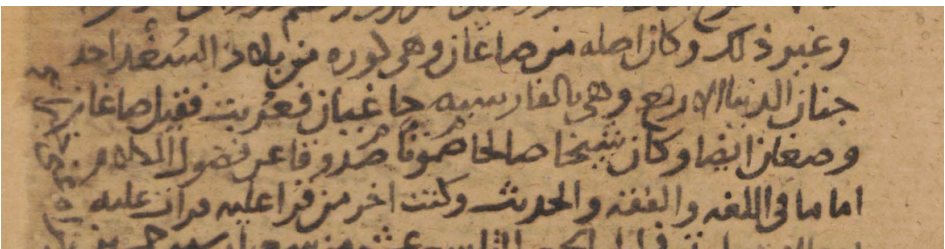 وغير ذلك وكان اصله من صاغان وهي كورة من بلاد السغد احد
جنان الدنيا الاربع وهي بالفارسيه جاغنيان فعربت فقيل صاغان
وصغان ايضا وكان شيخا صالحا صموتا صدوقا عن فضول الكلام
اماما في اللغه والفقه والحديث وكنت اخر من قرا عليه قرات عليه